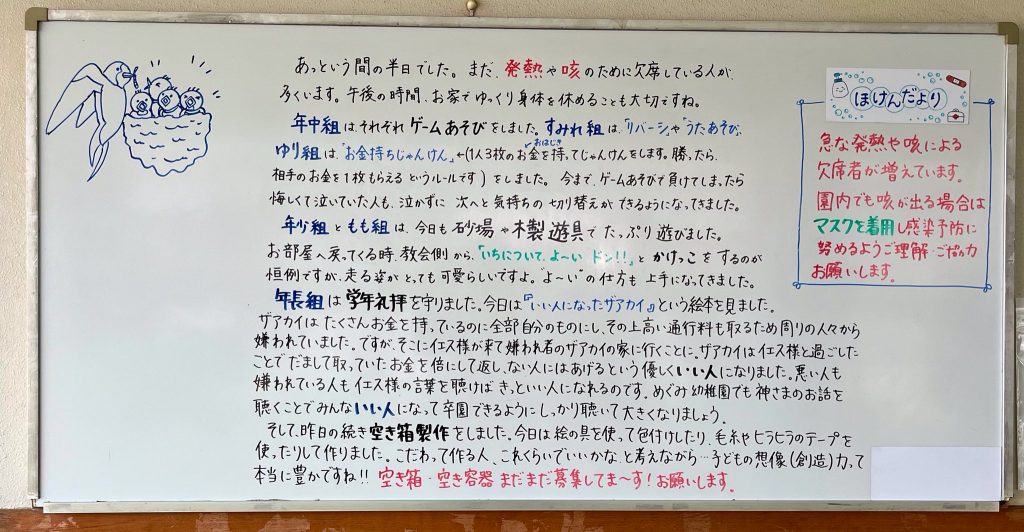 あっという間の半日でした。まだ、発熱や咳のために欠席している人が、
多くいます。午後の時間、お家でゆっくり身体を休めることも大切ですね。
年中組は、それぞれゲームあそびをしました。すみれ組は、「リバーシ」や「うたあそび」、
おはじき
ゆり組は「お金持ちじゃんけん」←(1人3枚のお金を持ってじゃんけんをします。勝ったら、
相手のお金を1枚もらえるというルールです)をしました。今まで、ゲームあそびで負けてしまったら
悔しくて泣いていた人も、泣かずに次へと気持ちの切り替えができるようになってきました。
年少組ともも組は、今日も砂場や木製遊具でたっぷり遊びました。
お部屋へ戻ってくる時、教会側から、「いちについて、よ～いドン!!」とかけっこをするのが
恒例ですが、走る姿がとっても可愛らしいですよ。"よ～い"の仕方も上手になってきました。
年長組は学年礼拝を守りました。今日は『いい人になったザアカイ』という絵本を見ました。
ザアカイはたくさんお金を持っているのに全部自分のものにし、その上高い通行料も取るため周りの人々から
嫌われていました。ですが、そこにイエス様が来て嫌われ者のザアカイの家に行くことに。ザアカイはイエス様と過ごした
ことでだまして取っていたお金を倍にして返し、ない人にはあげるという優しくいい人になりました。悪い人も
嫌われている人もイエス様の言葉を聴けばきっといい人になれるのです。めぐみ幼稚園でも神さまのお話を
聴くことでみんないい人になって卒園できるようにしっかり聴いて大きくなりましょう。
そして、昨日の続き空き箱製作をしました。今日は絵の具を使って色付けしたり、毛糸やヒラヒラのテープを
使ったりして作りました。こだわって作る人、これくらいでいいかな、と考えながら…子どもの想像(創造)力って
本当に豊かですね!!空き箱・空き容器まだまだ募集してま～す!お願いします。
ほけんだより
急な発熱や咳による
欠席者が増えています。
園内でも咳が出る場合は
マスクを着用し感染予防に
努めるようご理解・ご協力
お願いします。